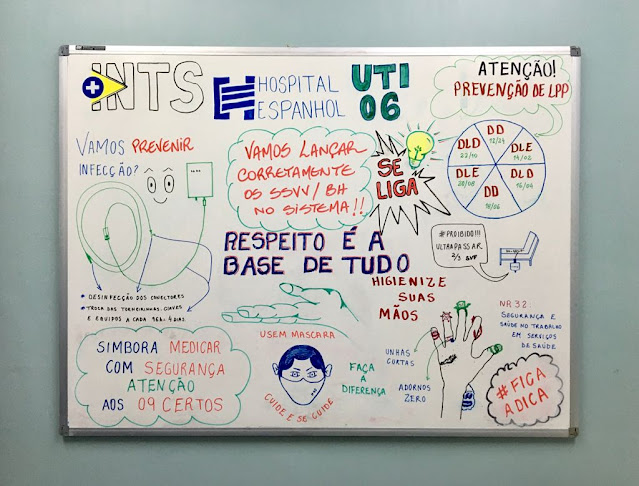 INTS
HOSPITAL
ESPANHOL
UTI
06
ATENÇÃO!
PREVENÇÃO DE LPP
VAMOS PREVENIR
INFECÇÃO?
VAMOS LANÇAR
CORRETAMENTE
OS SSVV/BH
NO SISTEMA!!
SE
LIGA
DD
12/24
DLE
14/02
DLD
16/04
DD
18/06
DLE
20/08
DLD
22/10
#PROIBIDO!!!
ULTRAPASSAR
2/3
RESPEITO É A
BASE DE TUDO
• DESINFECÇÃO DOS CONECTORES
• TROCA DAS TORNEIRINHAS,
E EQUIPOS A CADA 96h: 4 DIAS.
HIGIENIZE
SUAS
MÃOS
NR 32
SEGURANÇA E
SAÚDE NO TRABALHO
EM SERVIÇOS
DE SAÚDE
USEM MASCARA
SIMBORA MEDICAR
COM SEGURANÇA
ATENÇÃO
AOS 09 CERTOS
FAÇA
A
DIFERENÇA
UNHAS
CURTAS
ADORNOS
ZERO
CUIDE E SE CUIDE
#FICA
A DICA